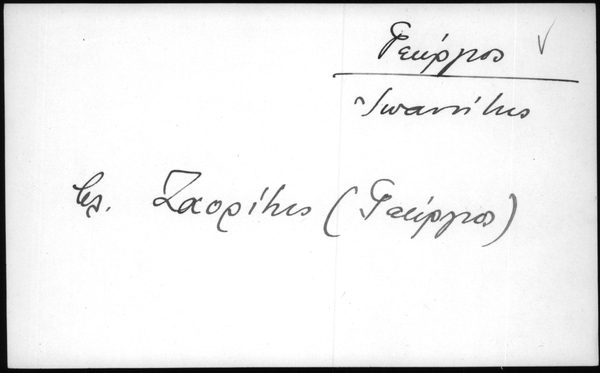 Γεώργιος
Ἰωαννίτης
βλ. Ζαορίτης (Γεώργιος)